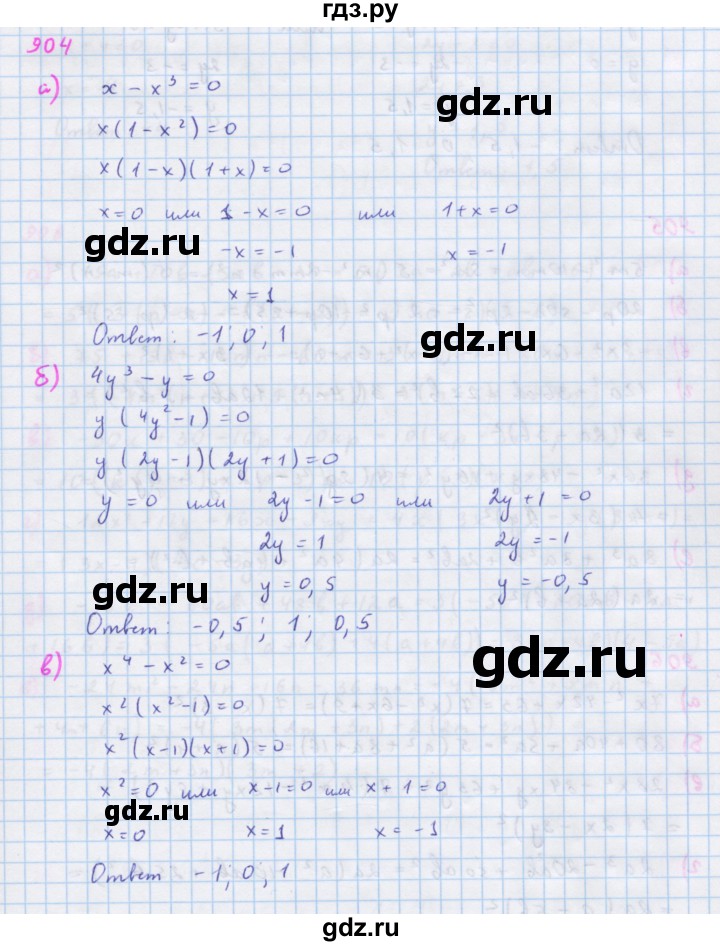 гдз.ру
904
а) x - x³ = 0
x(1 - x²) = 0
gdz.ru
x(1 - x)(1 + x) = 0
x = 0 или 1 - x = 0 или 1 + x = 0
gdz.ru
-x = -1 x = -1
gdz.ru
x = 1
Ответ: -1; 0; 1
б) 4y³ - y = 0
y(4y² - 1) = 0
gdz.ru
y(2y - 1)(2y + 1) = 0
y = 0 или 2y - 1 = 0 или 2y + 1 = 0
2y = 1 2y = -1
gdz.ru
y = 0,5 y = -0,5
Ответ: -0,5; 1; 0,5
в) x⁴ - x² = 0
gdz.ru
x²(x² - 1) = 0
x²(x - 1)(x + 1) = 0
x² = 0 или x - 1 = 0 или x + 1 = 0
gdz.ru
x = 0 x = 1 x = -1
Ответ -1; 0; 1
gdz.ru
gdz.ru